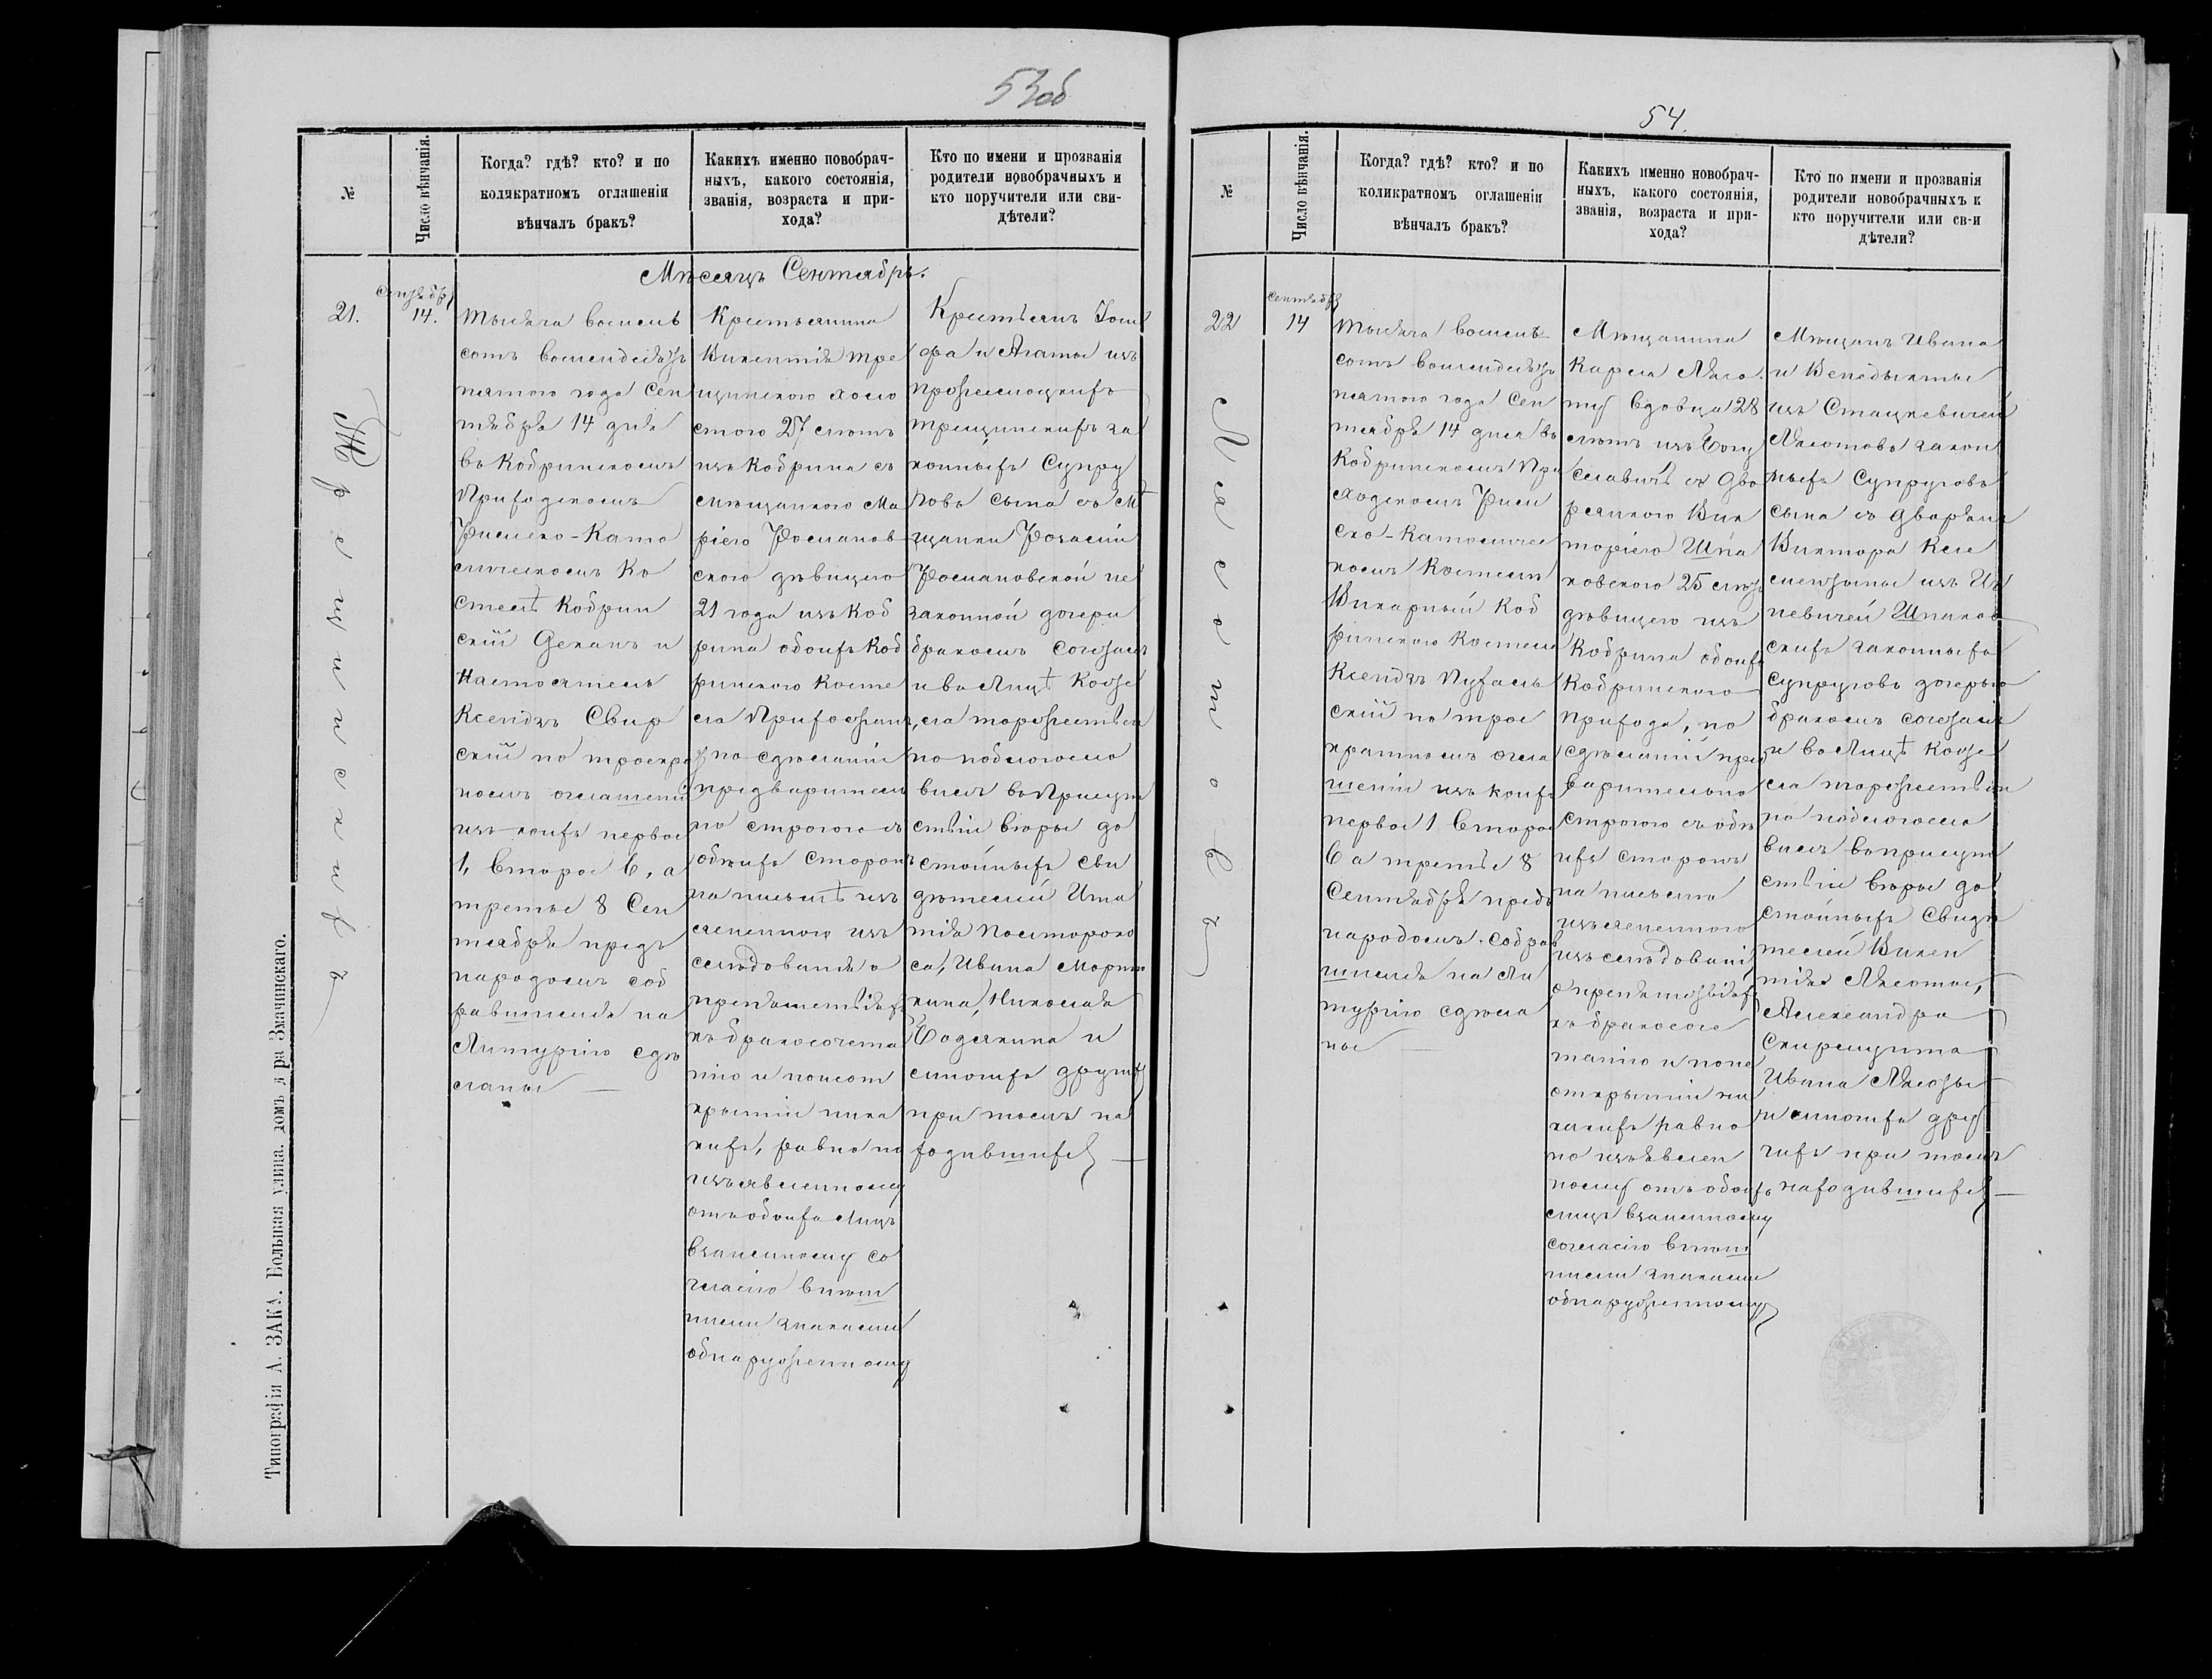 53об
№
Число вѣнчанія.
Когда? гдѣ? кто? и по
коликратномъ оглашеніи
вѣнчалъ бракъ?
Какихъ именно новобрач-
ныхъ, какого состоянія,
званія, возраста и при-
хода?
Кто по имени и прозванія
родители новобрачныхъ и
кто поручители или сви-
дѣтели?
Мѣсяцъ Сентябрь.
21.
14.
Тысяча восемь
сотъ восемдесятъ
пятого года Сен
тября 14 дня
въ Кобринскомъ
Приходскомъ
Римско-Като
лическомъ Ко
стелѣ Кобрин
скій Деканъ и
Настоятель
Ксендзъ Свир
скій по троекра
номъ оглашеніи
изъ коихъ первое
1, второе 6, а
третье 8 Сен
тября предъ
народомъ соб
равшимся на
Литургію сдѣ
ланы —
Крестьянина
Викентія Тре
щинского холо
стого 27 лѣтъ
изъ Кобрина съ
мѣщанкою Ма
ріею Романов
скою дѣвицею
21 года изъ Коб
рина обоихъ Коб
ринского Косте
ла Прихожан
по сдѣланіи
предварительн
но строгого съ
обѣихъ сторонъ
на письмѣ изъ
ясненного из
слѣдованія о
препятствіяхъ
къ бракосочета
нію и неот
крытіи ника
кихъ, равно по
изъявленному
отъ обоихъ лицъ
взаимному со
гласію внѣш
ними знаками
обнаруженному
Крестьянъ Іоси
фа и Агаты изъ
Трещинскихъ за
конныхъ Супру
говъ сына съ М
щанки Розаліи
Романовской не
законной дочери
бракомъ сочеталъ
и въ лицѣ Косте
ла торжественн
но благословилъ
въ присут
ствіи вѣры до
стойныхъ сви
дѣтелей Игна
тія
Ивана
Николая
Бодякина и
многихъ другихъ
при томъ на
ходившихся —
Трещинскихъ
Типографія А. ЗАКА. Большая улица. домъ д ра Змачинскаго.
54.
№
Число вѣнчанія.
Когда? гдѣ? кто? и по
коликратномъ оглашеніи
вѣнчалъ бракъ?
Какихъ именно новобрач-
ныхъ, какого состоянія,
званія, возраста и при-
хода?
Кто по имени и прозванія
родители новобрачныхъ и
кто поручители или св-и
дѣтели?
22
14
Тысяча восемь
сотъ восемдесятъ
пятого года Сен
тября 14 дня въ
Кобринскомъ При
ходскомъ Рим
ско-Католичес
комъ Костелѣ
Викарный Коб
ринского Костела
Ксендзъ Пухаль
скій по трое
кратномъ огла
шеніи изъ коихъ
первое 1 второе
6 а третье 8
Сентября предъ
народомъ собрав
шимся на Ли
тургію сдѣла
ны —
Мѣщанина
Карла Лясо
ту вдовца 28
лѣтъ изъ Богу
славичъ съ Дво
рянкою Вик
торіею Шпа
ковскою 25 лѣтъ
дѣвицею изъ
Кобрина обоихъ
Кобринского
прихода, по
сдѣланіи пред
варительно
строгого съ обѣ
ихъ сторонъ
на письмѣ
изъясненного
изслѣдованія
о препятствіяхъ
къ бракосоче
танію и по не
открытіи ни
какихъ равно
по изъявлен
ному отъ обоихъ
лицъ взаимному
согласію внѣш
ними знаками
обнаруженному
Мѣщанъ Ивана
и Бенедыкты
изъ Стацкевичей
Лясотовъ закон
ныхъ Супруговъ
сына съ Дворянъ
Виктора
Шпаков
скихъ законныхъ
супруговъ дочерью
бракомъ сочеталъ
и въ лицѣ Косте
ла торжественн
но благословилъ
въ присут
ствіи вѣры до
стойныхъ свидѣ
телей Викен
тія Лясоты,
Александра
Скирмунта
Ивана Лясоты
и многихъ дру
гихъ при томъ
находившихся —
Лясотовъ